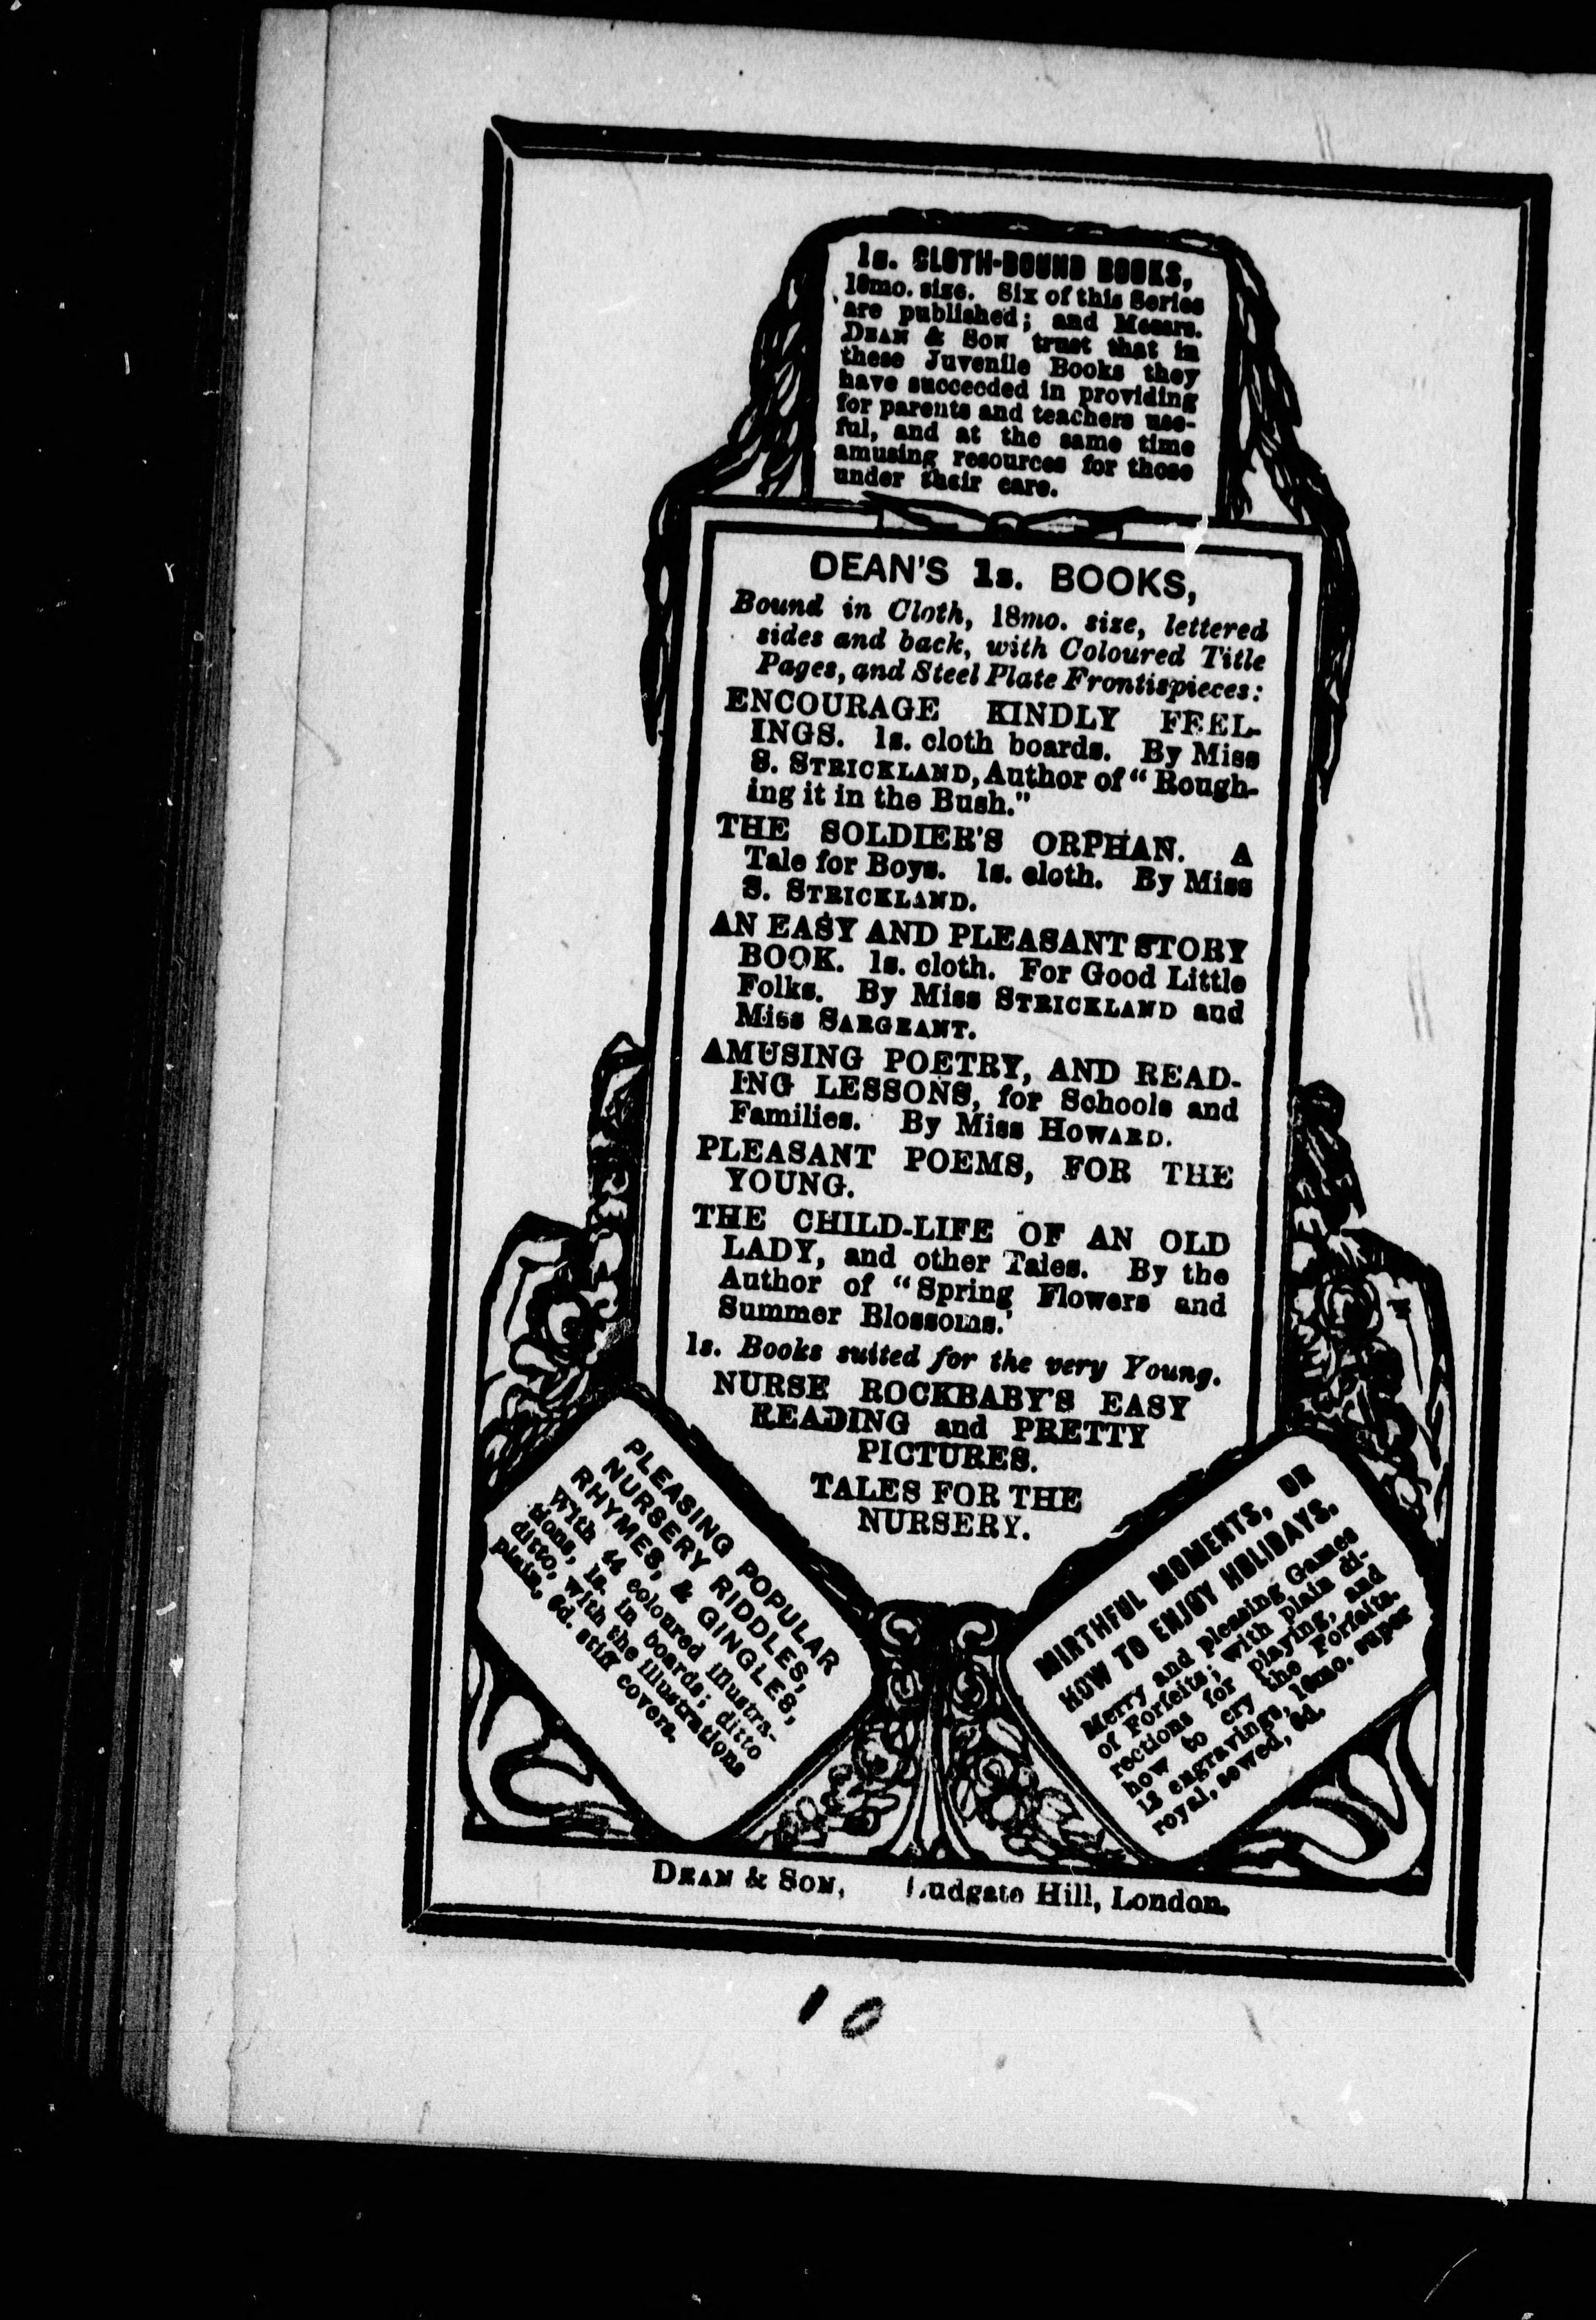 1s. CLOTH-BOUND BOOKS,
18mo. size. Six of this Series
are published; and Messrs.
DEAN & SON trust that in
these Juvenile Books they
have succeeded in providing
for parents and teachers use-
ful, and at the same time
amusing resources for those
under their care.
DEAN'S 1s. BOOKS,
Bound in Cloth, 18mo. size, lettered
sides and back, with Coloured Title
Pages, and Steel Plate Frontispieces:
ENCOURAGE KINDLY FEEL-
INGS. 1s. cloth boards. By Miss
S. STRICKLAND, Author of "Rough-
ing it in the Bush."
THE SOLDIER'S ORPHAN. A
Tale for Boys. 1s. cloth. By Miss
S. STRICKLAND.
AN EASY AND PLEASANT STORY
BOOK. 1s. cloth. For Good Little
Folks. By Miss STRICKLAND and
Miss SARGEANT.
AMUSING POETRY, AND READ-
ING LESSONS, for Schools and
Families. By Miss HOWARD.
PLEASANT POEMS, FOR THE
YOUNG.
THE CHILD-LIFE OF AN OLD
LADY, and other Tales. By the
Author of "Spring Flowers and
Summer Blossoms.'
1s. Books suited for the very Young.
NURSE ROCKBABY'S EASY
READING and PRETTY
PICTURES.
TALES FOR THE
NURSERY.
PLEASING POPULAR
NURSERY RIDDLES,
RHYMES, & GINGLES,
With 44 coloured illustra-
tions, 1s. in boards; ditto
ditto, with the illustrations
plain, 6d. stiff covers.
MIRTHFUL MOMENTS, OR
HOW TO ENJOY HOLIDAYS.
Merry and pleasing Games
of Forfeits; with plain di-
rections for playing, and
how to cry the Forfeits.
12 engravings, 16mo. super
royal, sewed, 6d.
DEAN & SON, Ludgate Hill, London.
10